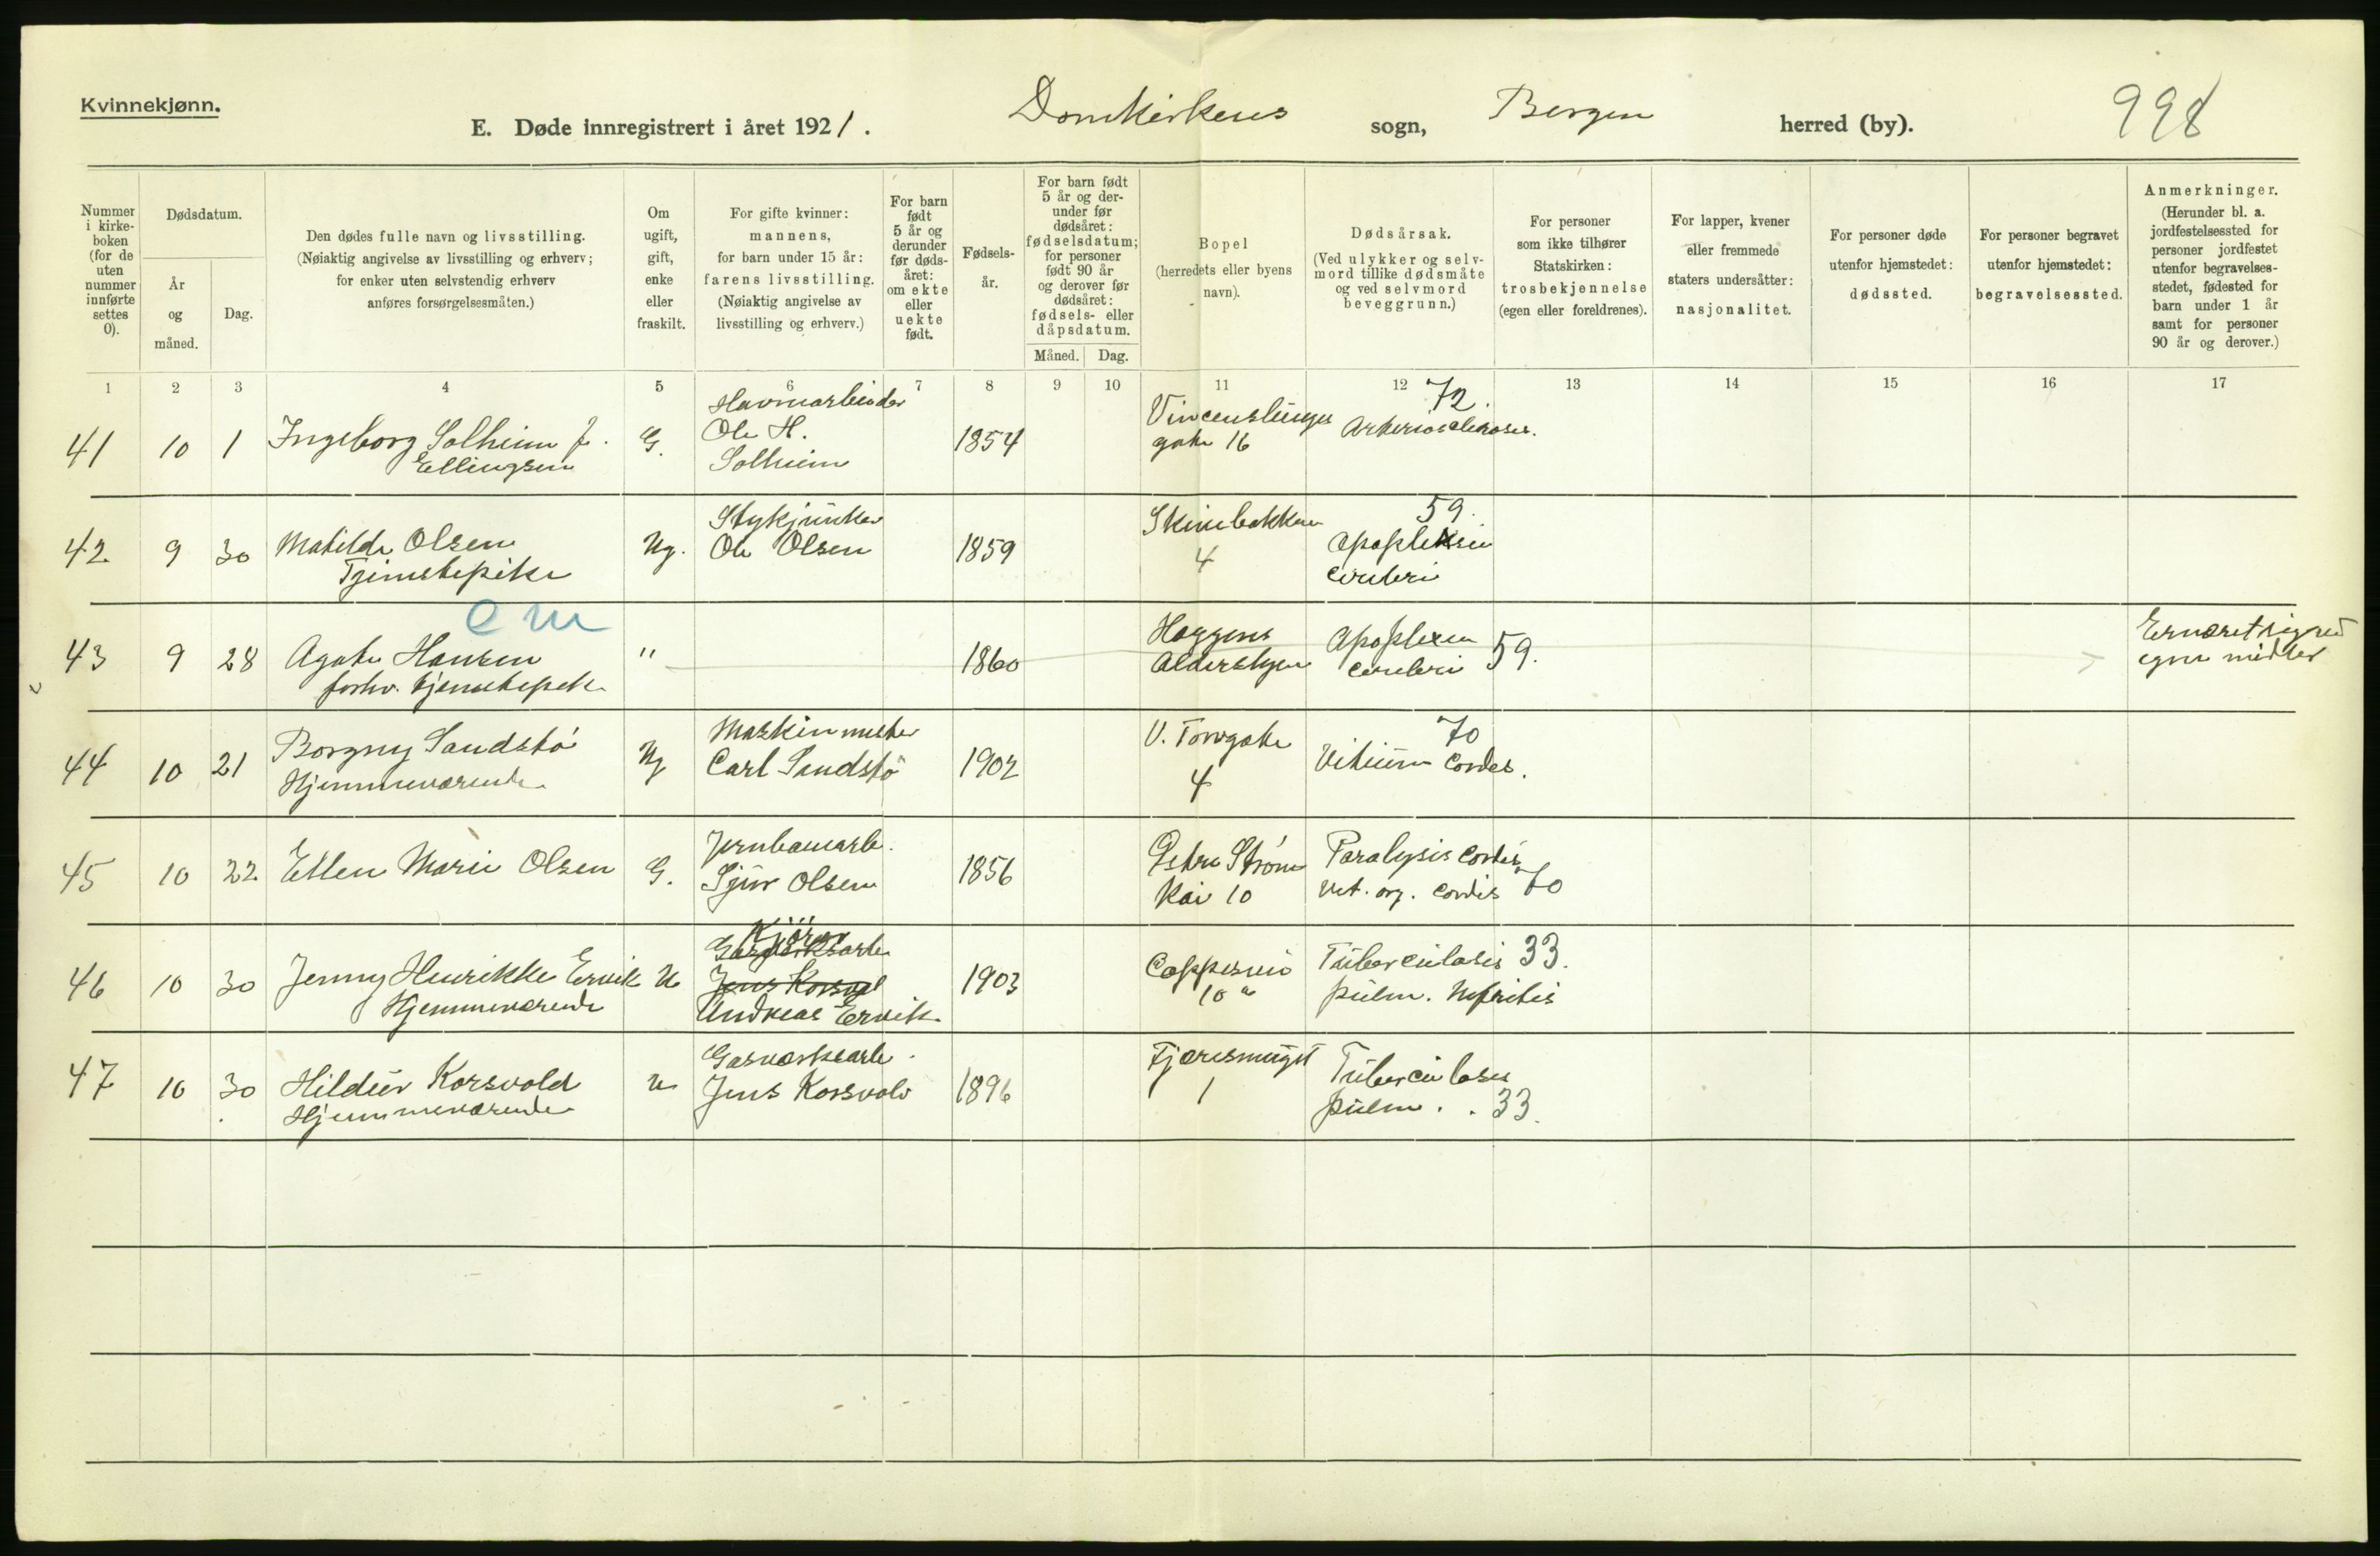 Kvinnekjønn.
E. Døde innregistrert i året 1921. Domkirkens sogn, Bergen herred (by). 998
Nummer i kirke- boken (for de uten nummer innførte settes 0).
Dødsdatum.
År og måned.
Dag.
Den dødes fulle navn og livsstilling.
(Nøiaktig angivelse av livsstilling og erhverv;
for enker uten selvstendig erhverv
anføres forsørgelsesmåten.)
Om ugift, gift, enke eller fraskilt.
For gifte kvinner:
mannens,
for barn under 15 år:
farens livsstilling.
(Nøiaktig angivelse av
livsstilling og erhverv.)
For barn født 5 år og derunder før døds- året: om ekte eller uekte født.
Fødsels- år.
For barn født 5 år og der- under før dødsåret: fødselsdatum; for personer født 90 år og derover før dødsåret: fødsels- eller dåpsdatum.
Måned. Dag.
Bopel
(herredets eller byens
navn).
Dødsårsak.
(Ved ulykker og selv-
mord tillike dødsmåte
og ved selvmord
beveggrunn.)
For personer
som ikke tilhører
Statskirken:
trosbekjennelse
(egen eller foreldrenes).
For lapper, kvener
eller fremmede
staters undersåtter:
nasjonalitet.
For personer døde
utenfor hjemstedet:
dødssted.
For personer begravet
utenfor hjemstedet:
begravelsessted.
Anmerkninger.
(Herunder bl. a.
jordfestelsessted for
personer jordfestet
utenfor begravelses-
stedet, fødested for
barn under 1 år
samt for personer
90 år og derover.)
1 2 3 4 5 6 7 8 9 10 11 12 13 14 15 16 17
41 10 1 Ingeborg Solheim f.
Ellingsen
G.
Havnearbeider
Ole H.
Solheim
1854
Vincenslunges
gate 16
72.
Arteriosclerosis.
42 9 30 Matilde Olsen
Tjenestepike
Ug.
Stykjunker
Ole Olsen
1859
Skivebakken
4
59.
Apoplexia
cerebri
em
43 9 28 Agate Hansen
forhv. tjenestepik
"
1860
Hoggens
Aldershjem
Apoplexia
cerebri 59.
Ernæret sig ved
egne midler
44 10 21 Borgny Sandstö
Hjemmeværende
Ug
Maskinmester
Carl Sandstö
1902
V. Torvgate
4
70
Vitium Cordis.
45 10 22 Ellen Marie Olsen
G.
Jernbanearb.
Sjur Olsen
1856
Strøm
Kai 10
Paralysis cordis
Vit. org. cordis 70
46 10 30 Jenny Henrikke Ervik
Hjemmeværende
U
Kjører
Gasverksarb.
Jens Korsvol
Andreas Ervik
1903
Cappesvei
10 a
Tuberculosis 33.
pulm. Nefritis
47 10 30 Hildur Korsvold
Hjemmeværende
U
Gasverksarb.
Jens Korsvold
1896
Fjæresmuget
1
Tuberculosis
pulm. . 33.